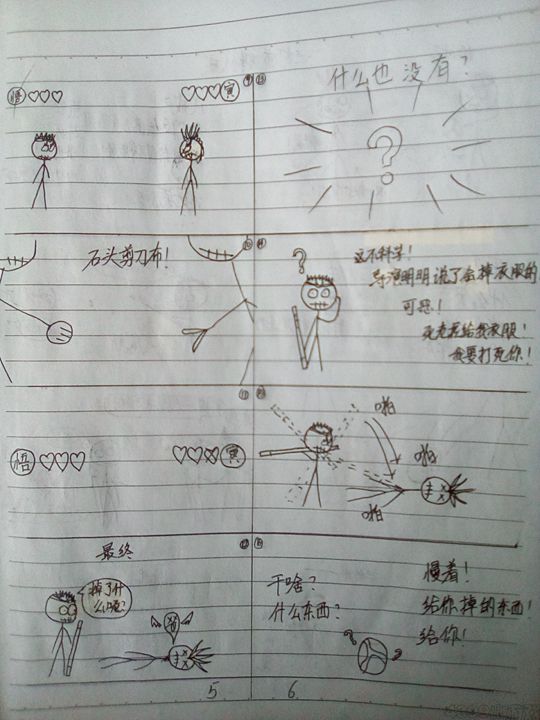 悟♡♡♡
♡♡♡寅
石头剪刀布！
悟♡♡♡
♡♡♡寅
最终
掉了什
么呢？
5
什么也没有？
?
?
这不科学！
导演明明说了会掉衣服的
可恶！
我要打死你！
啪
啪
啪
干啥？
什么东西？
慢着！
给你掉的东西！
给你！
6